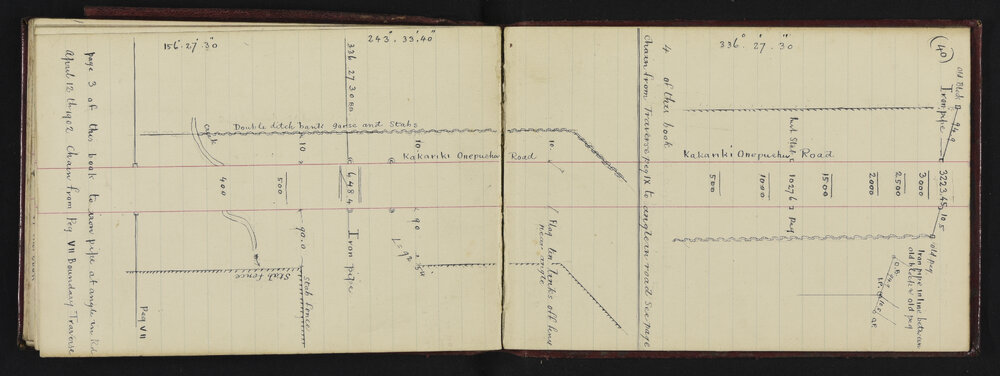 April 12th 1902 Chain from Peg VII Boundary Traverse
page 3 of this book to iron pipe at angle in Rd
Peg VII
156° 27' 30"
400
500
Creek
10
Stab fence
90.0
Stab fence
Double ditch bank gorse and Stabs
336 27 30 00
648.4
Iron pipe
243° 33' 40"
10
Kakariki Onepuehu Road
90
10
near angle
chain from Traverse peg IX to angle in road See page
4 of this book
336° 27' 30"
(40)
Old Block
Iron pipe
94.9
Kakariki Onepuehu Road
500
1000
10276 peg
1500
2000
2500
3000
3223.45
10.5
old peg
Iron pipe in line between
old block & old peg
O.B.
O.P.